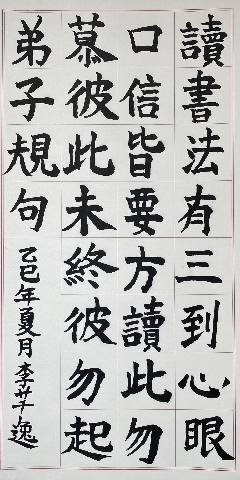 讀書法有三到心眼
口信皆要方讀此勿
慕彼此未終彼勿起
弟子規句
乙巳年夏月李芊逸